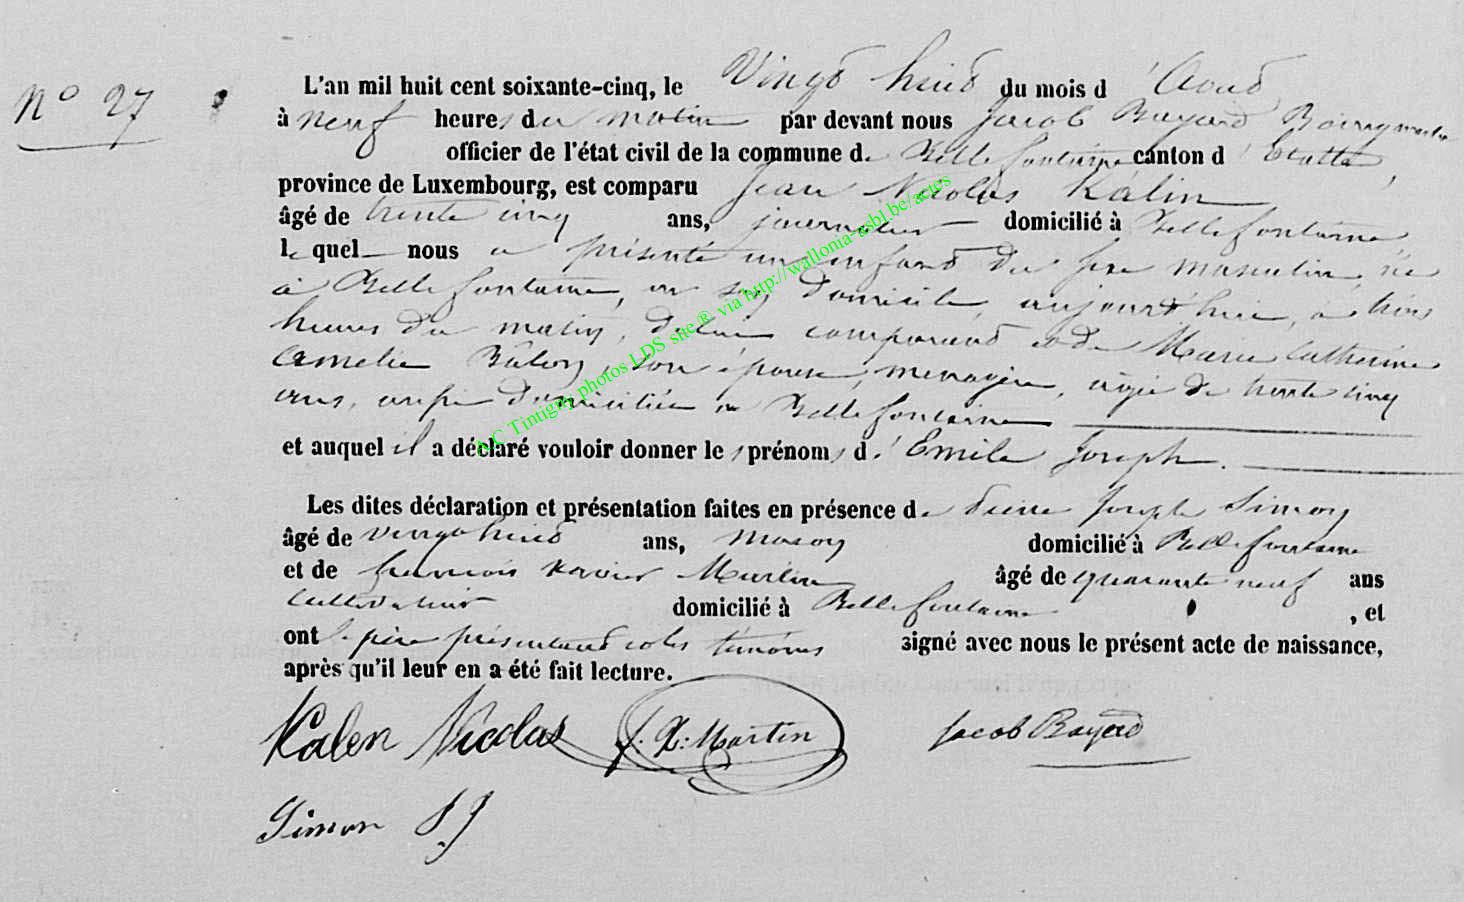 N° 27
L'an mil huit cent soixante-cinq, le Vingt huit du mois d'Aout
à neuf heures du matin par devant nous Jacob Bayard Bourgmestre
officier de l'état civil de la commune de Bellefontaine canton d'Etalle,
province de Luxembourg, est comparu Jean Nicolas Kalin
âgé de trente cinq ans, journalier domicilié à Bellefontaine,
lequel nous a présenté un enfant du sexe masculin, né
à Bellefontaine, en son domicile, aujourd'hui, à trois
heures du matin, de lui comparant et de Marie Catherine
Amelie son épouse, menagère, agée de trente cinq
ans, aussi domiciliée à Bellefontaine
et auquel il a déclaré vouloir donner les prénoms d'Emile Joseph.
Les dites déclaration et présentation faites en présence de Pierre Joseph Simon
âgé de vingt huit ans, mason domicilié à Bellefontaine
et de francois Xavier Martin âgé de quarante neuf ans
cultivateur domicilié à Bellefontaine, et
ont le père présentant et les témoins signé avec nous le présent acte de naissance,
après qu'il leur en a été fait lecture.
Kalen Nicolas f. X. Martin Jacob Bayard
Simon P J
A.C Tintigny photos LDS site ® via http://wallonia-asbl.be/actes